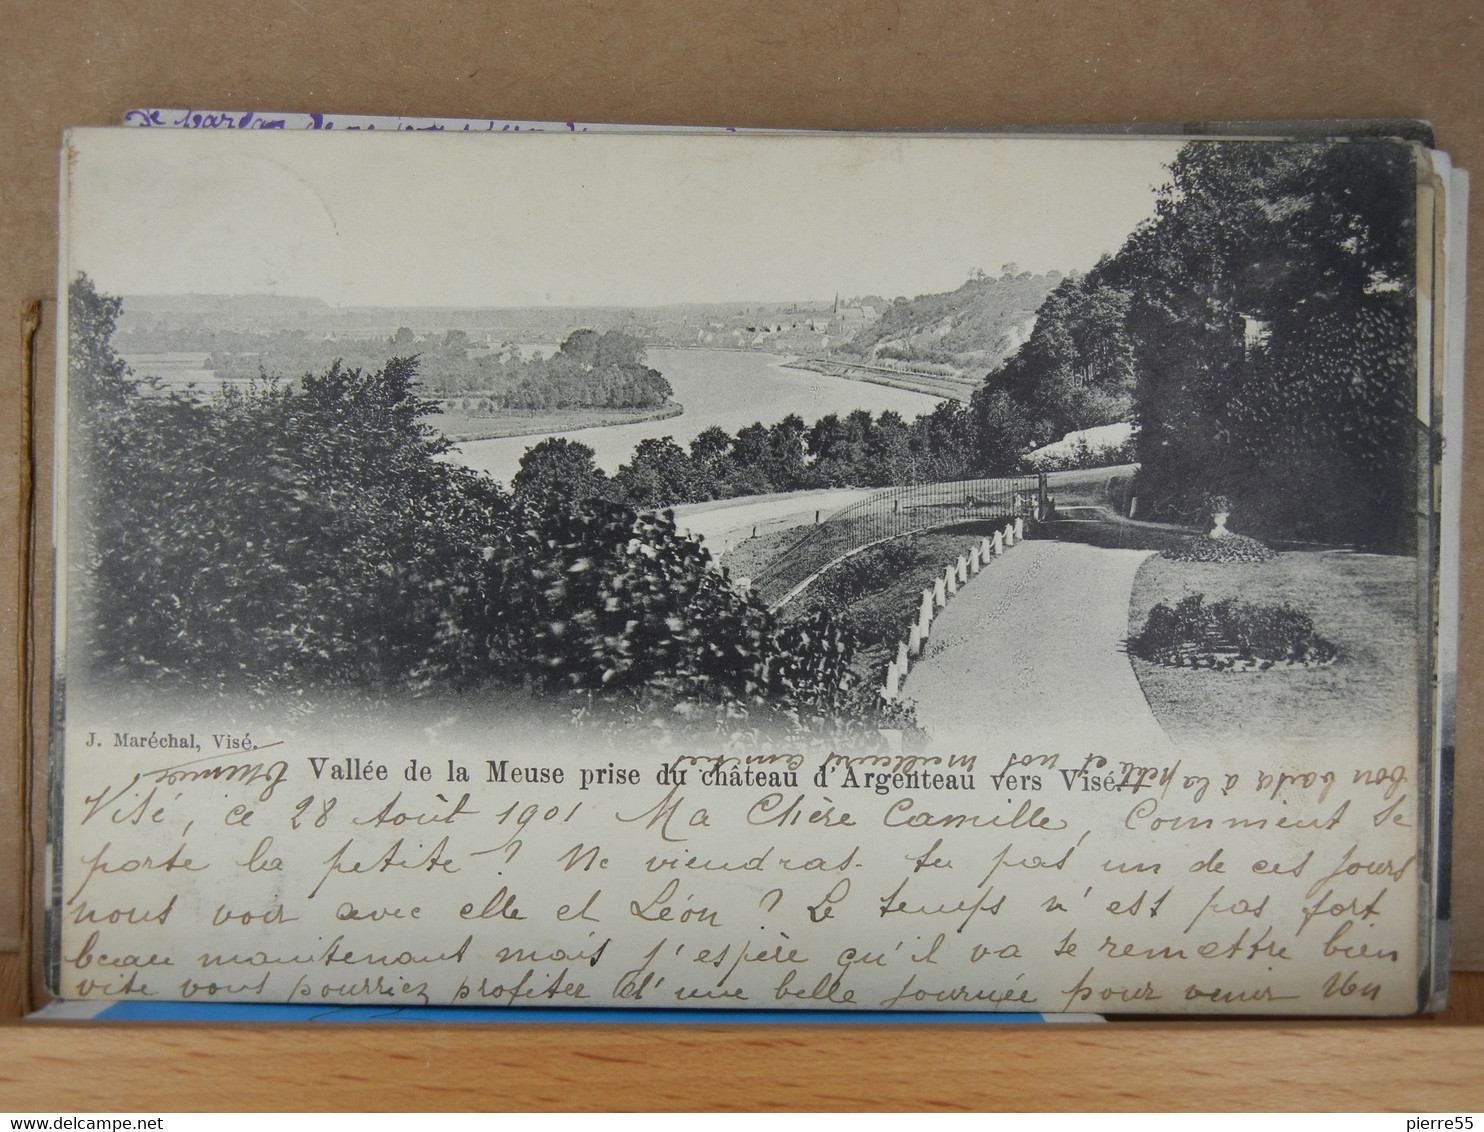 J. Maréchal, Visé.
Vallée de la Meuse prise du château d'Argenteau vers Visé.
Visé, ce 28 Août 1901 Ma Chère Camille, Comment se
porte la petite? Ne viendras-tu pas un de ces jours
nous voir avec elle et Léon? Le temps n'est pas fort
beau maintenant mais j'espère qu'il va se remettre bien
vite vous pourriez profiter d'une belle journée pour venir Un
bon à la petite et nos meilleurs amitiés
pierre55